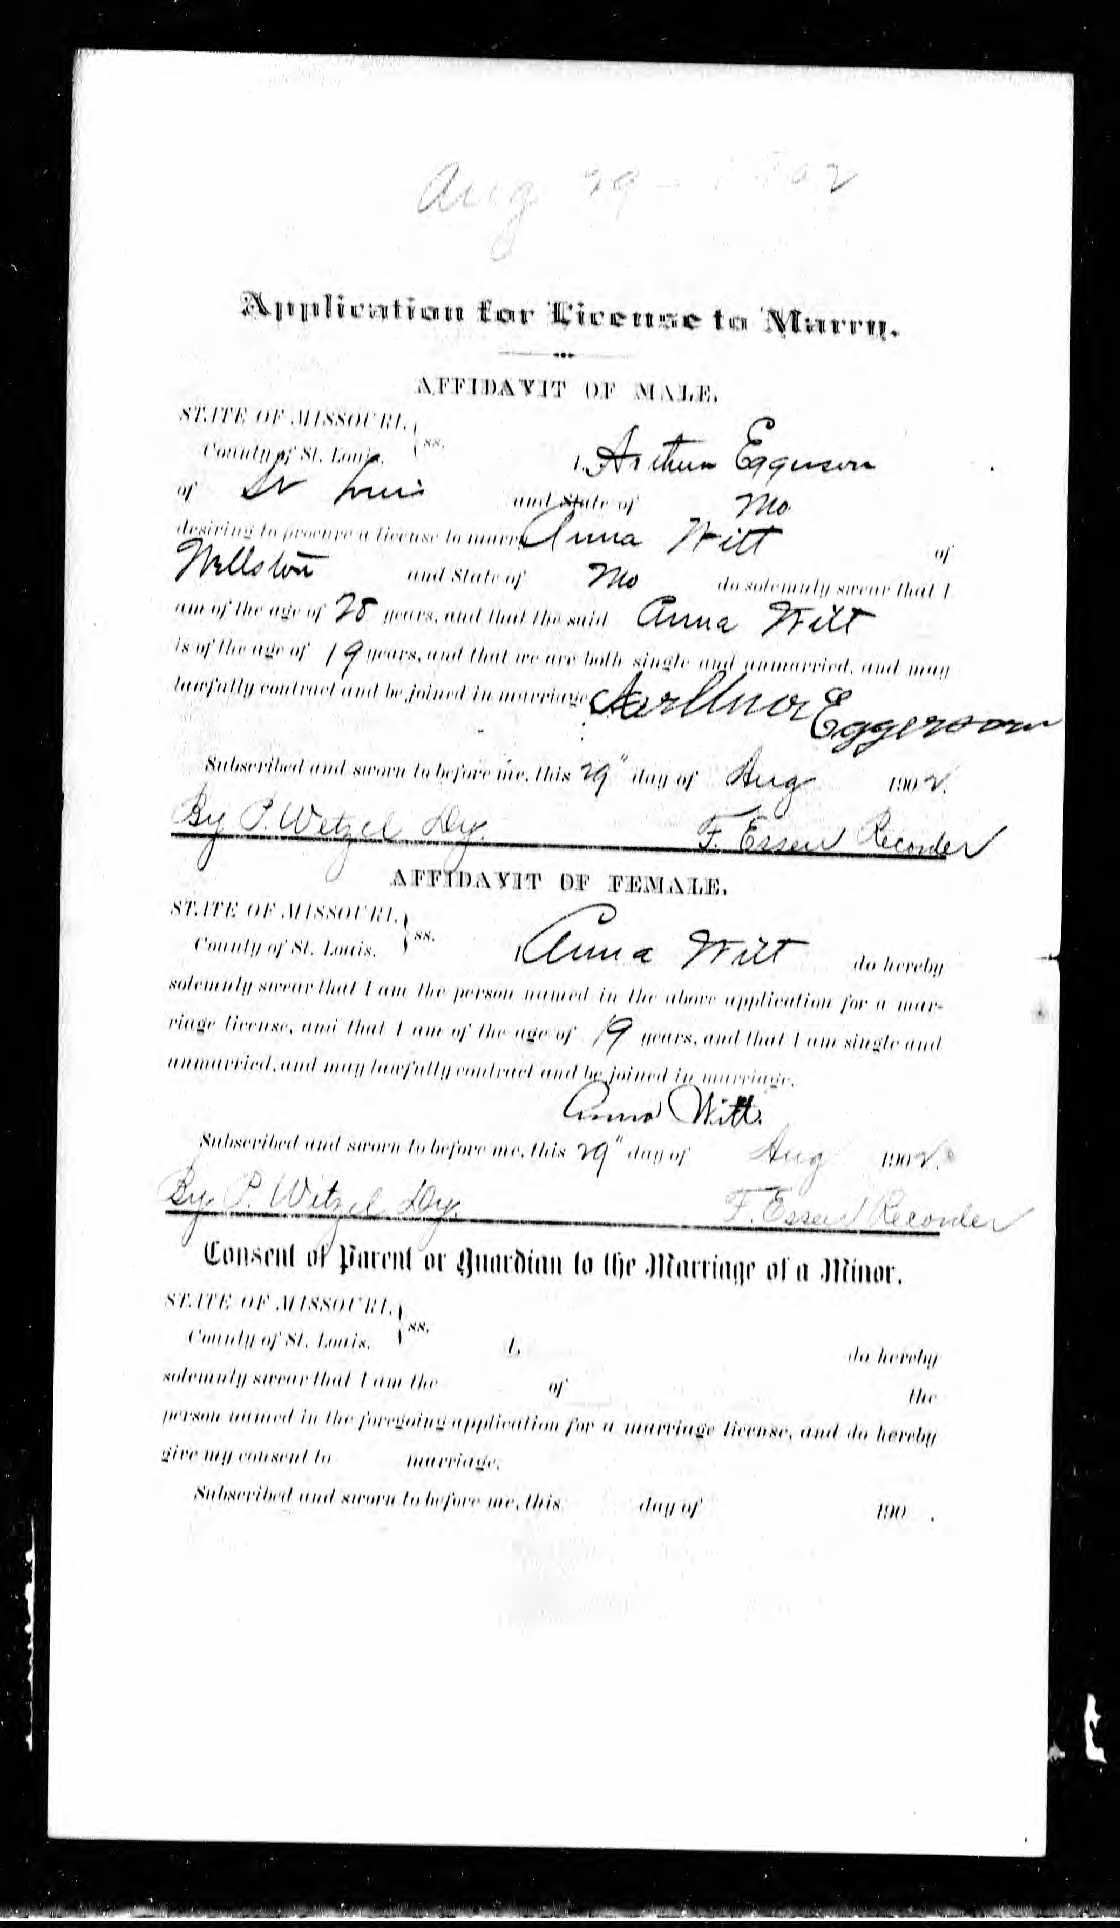 Aug 29 - 1902
Application for License to Marry.
AFFIDAVIT OF MALE.
STATE OF MISSOURI,
County of St. Louis. } ss. I, Arthur Eggerson
of St Louis and State of Mo
desiring to procure a license to marry Anna Witt of
Wellston and State of Mo do solemnly swear that I
am of the age of 28 years, and that the said Anna Witt
is of the age of 19 years, and that we are both single and unmarried, and may
lawfully contract and be joined in marriage. Arthur Eggerson
Subscribed and sworn to before me, this 29" day of Aug 1902.
By P. Wetzel Dy. F. Essen Recorder
AFFIDAVIT OF FEMALE.
STATE OF MISSOURI,
County of St. Louis. } ss. I, Anna Witt do hereby
solemnly swear that I am the person named in the above application for a mar-
riage license, and that I am of the age of 19 years, and that I am single and
unmarried, and may lawfully contract and be joined in marriage.
Anna Witt.
Subscribed and sworn to before me, this 29" day of Aug 1902.
By P. Wetzel Dy. F. Essen Recorder
Consent of Parent or Guardian to the Marriage of a Minor.
STATE OF MISSOURI,
County of St. Louis. } ss. I, do hereby
solemnly swear that I am the of the
person named in the foregoing application for a marriage license, and do hereby
give my consent to marriage.
Subscribed and sworn to before me, this day of 190 .